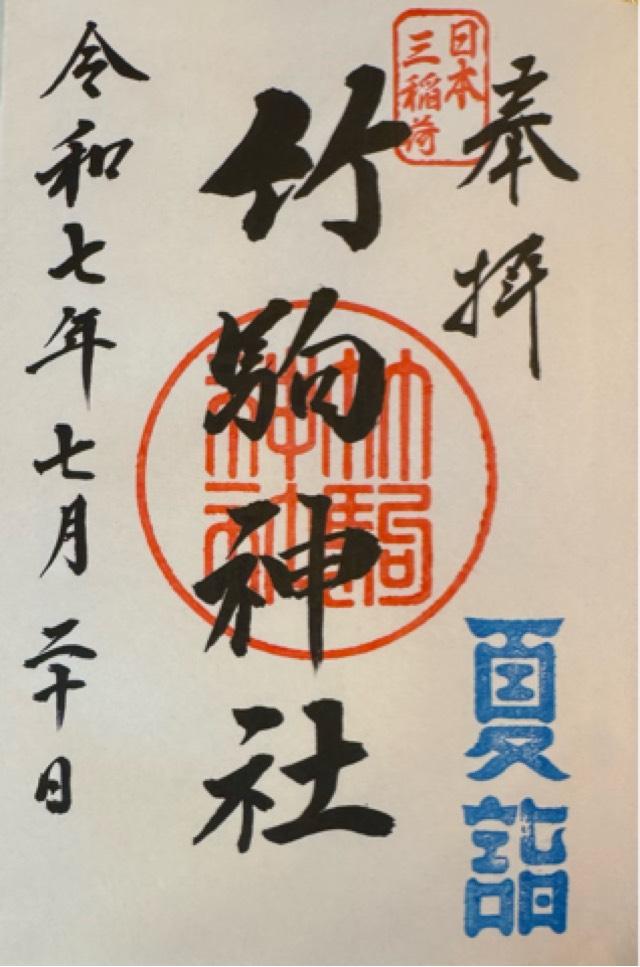 奉拝
日本
三稲荷
竹駒神社
竹駒
神社
夏詣
令和七年七月二十日